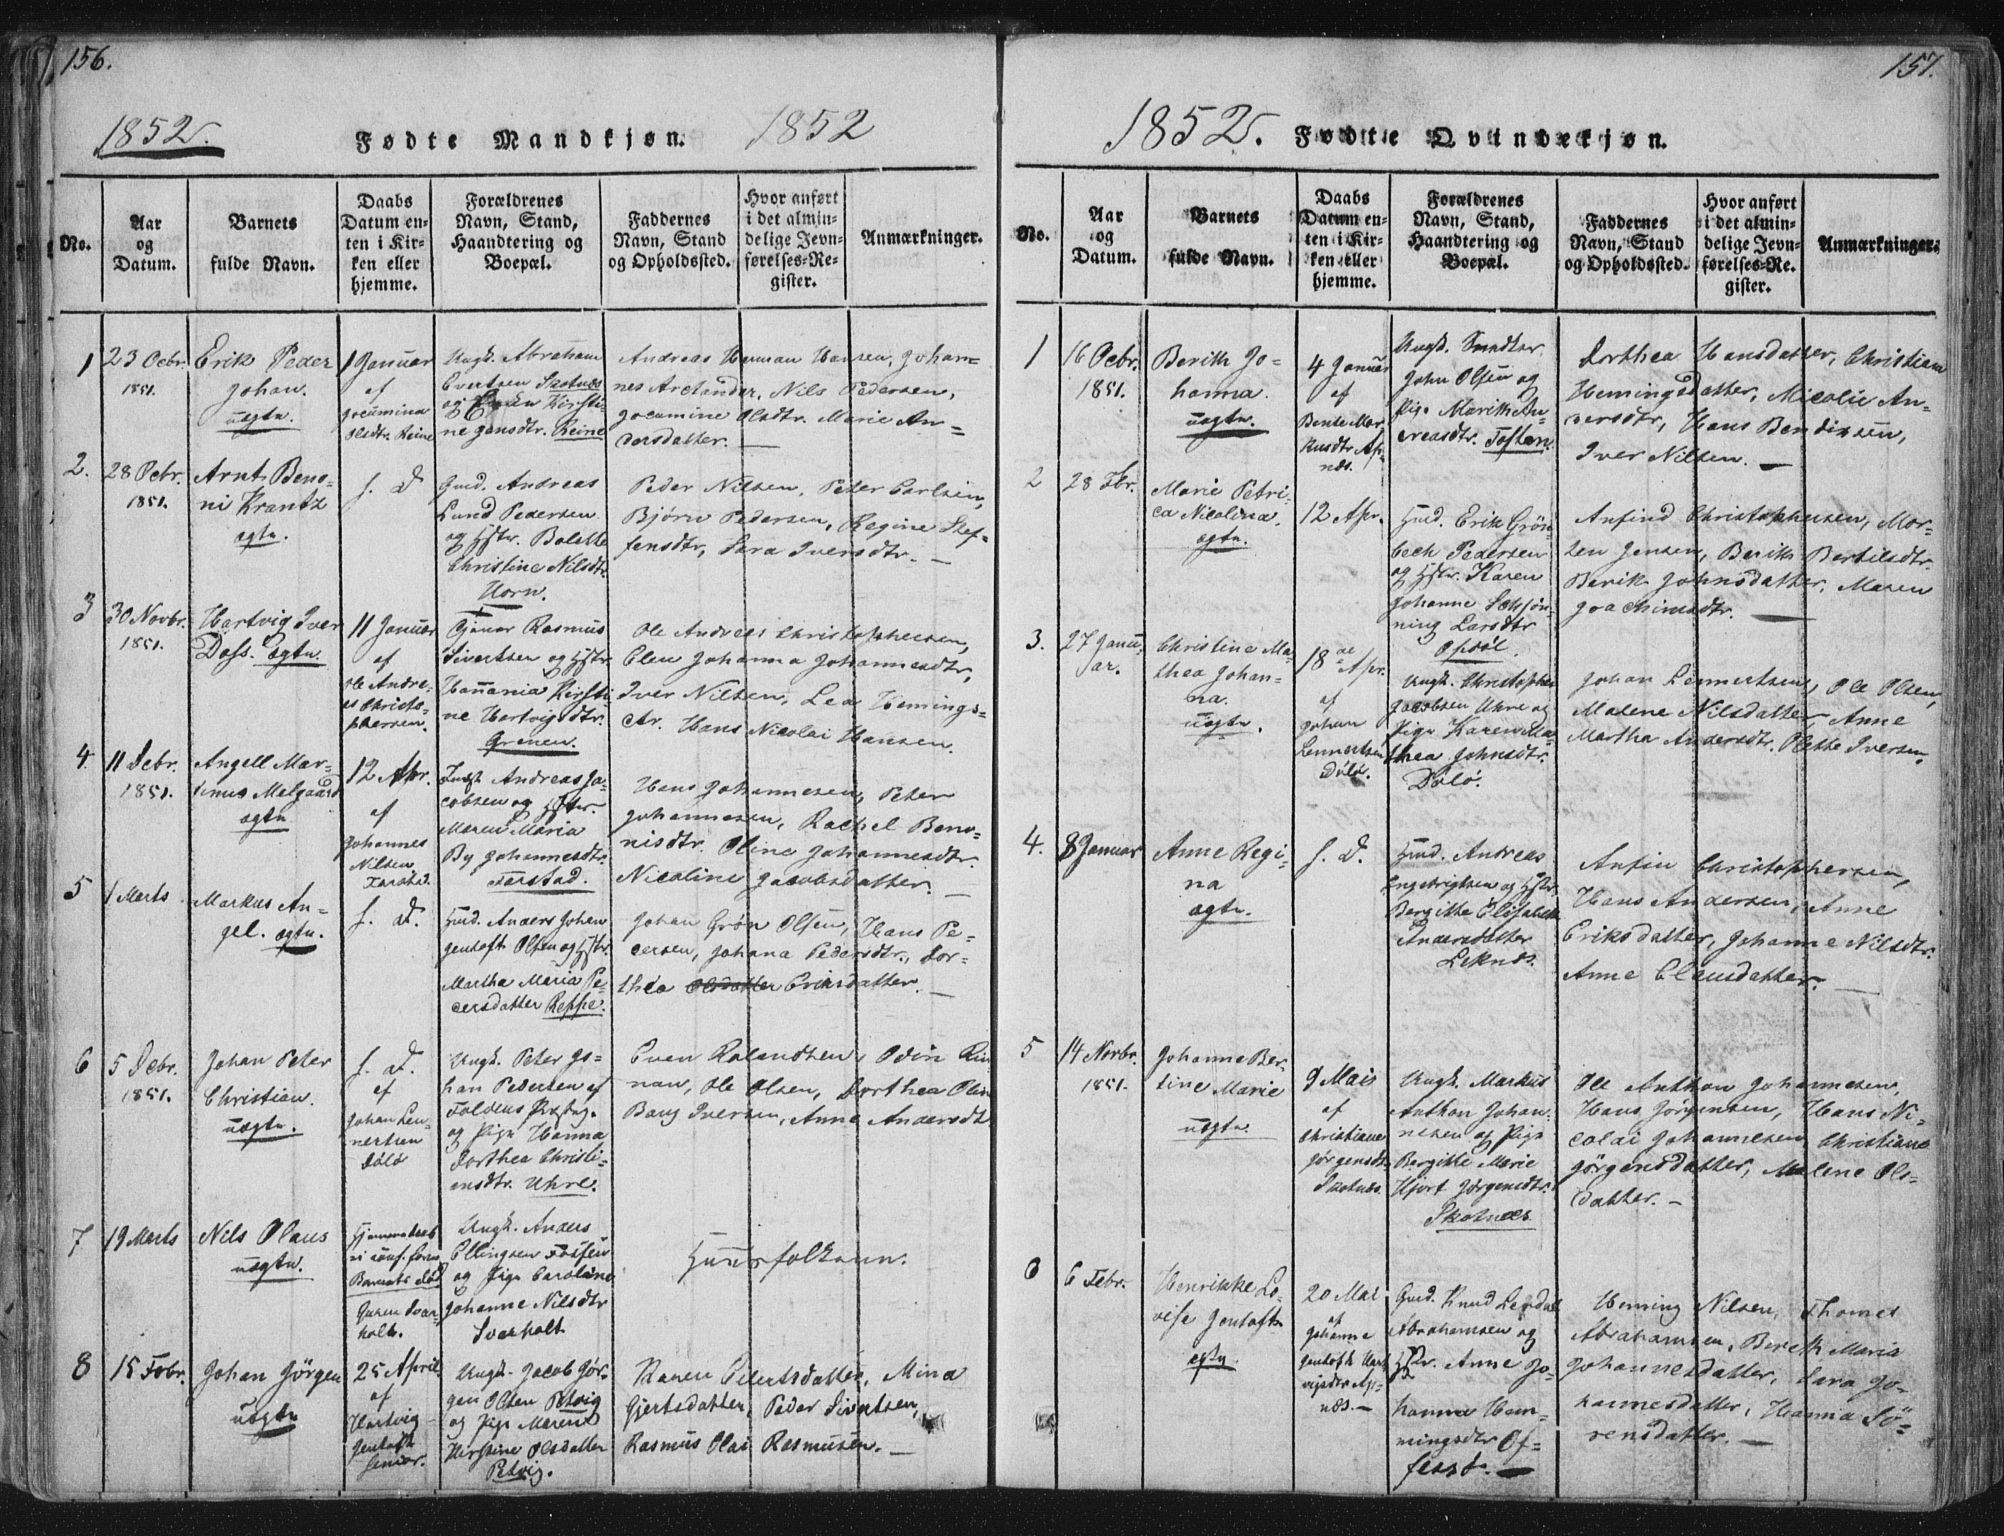 156.
1852.
Fødte Mandkjøn.
1852
No.
Aar og Datum.
Barnets fulde Navn.
Daabs Datum enten i Kirken eller hjemme.
Forældrenes Navn, Stand, Haandtering og Boepæl.
Faddernes Navn, Stand og Opholdssted.
Hvor anført i det almindelige Jevnførelses-Register.
Anmærkninger.
1
23 Decbr. 1851.
Erik Peder
Johan.
uægte.
1 Januar
af
Jocumina
Olsdtr. Reine
Ungk. Abraham
Evertsen Skotnæs
og Kirsti-
ne Jensdtr. Reine
Andreas Herman Hansen, Johan-
nes Arctander, Nils Pedersen,
Jocumine Olsdtr. Marie An-
dersdatter. —
2.
28 Decbr. 1851.
Arnt Beno-
ni Krantz
ægte.
s. D.
Gmd. Andreas
Lund Pedersen
og Hstr. Bolette
Christine Nilsdtr.
Horn.
Peder Nilsen, Peter Carlsen,
Bjørn Pedersen, Regine Stef-
fensdtr, Sara Iversdtr. —
3
30 Novbr. 1851.
Hartvig Iver
Dass. Ægte.
11 Januar
af
Ole Andre-
as Christo-
phersen.
Rasmus
Sivertsen og Hstr.
Hannania Kirsti-
ne Hartvigsdtr.
Grenen.
Ole Andreas Christophersen,
Elen Johanna Johannesdtr,
Iver Nilsen, Lea Hemings-
dtr. Hans Nicolai Hansen.
4.
11 Decbr. 1851.
Angell Mar-
tinus Melgaard
ægte
12 Apr.
af
Johannes
Nilsen
Farstad.
Andreas Ja-
cobsen og Hstr.
Maren Maria
By Johannesdtr.
Farstad.
Hans Johannesen, Peter
Johannesen, Rachel Beno-
nisdtr. Oline Johannesdtr.
Nicoline Jacobsdatter. —
5
1 Marts
Markus An-
gel. ægte.
s. D.
Hmd. Anders Johan
Jentoft Olsen og Hstr.
Martha Maria Pe-
dersdatter Reppe.
Johan Grøn Olsen, Hans Pe-
dersen, Johana Pedersdtr., Dor-
thea Olsdatter Eriksdatter. —
6
5 Decbr. 1851.
Johan Peter
Christian.
uægte.
s. D.
af
Johan Len-
nertsen
Dølø
Ungk. Peter Jo-
han Pedersen af
Foldens Præstg.
og Pige Hanna
Dorthea Christi-
ensdtr. Uhre.
Even Rolandsen, Odin Rin
nan, Ole Olsen, Dorthea Olin
Bang Iversen, Anne Andersdt
7
19 Marts
Nils Olaus
uægte.
Hjemmedøbt
Barnets død
Svær-
holt.
Ungk. Anders
Ellingsen Tofsen
og Pige Caroline
Johanne Nilsdtr
Sverholt
Huusfolkene.
8
15 Febr.
Johan Jörgen
uægte
25 April
af
Hartvig
Jentoft
senior.
Ungk. Jacob Jör-
gen Olsen Petvig
og Pige Maren
Kirstine Olsdatter
Petvig.
Karen Peiertsdatter, Mina
Gjertsdatter, Peder Sivertsen,
Rasmus Olai Rasmusen. —
157.
1852.
Fødte Qvindekjøn.
No.
Aar og Datum.
Barnets fulde Navn.
Daabs Datum enten i Kirken eller hjemme.
Forældrenes Navn, Stand, Haandtering og Boepæl.
Faddernes Navn, Stand og Opholdssted.
Hvor anført i det almindelige Jevnførelses-Register.
Anmærkninger.
1
16 Decbr. 1851.
Berith Jo-
hanna.
uægte.
4 Januar
af
Bente Mar
kusdtr Ap-
næs.
Ungk. Snedker
John Olsen og
Pige Marith An-
dreasdtr. Tofsten.
Dorthea Hansdatter, Christian
Hemingsdatter, Nicolie An-
dersdtr, Hans Bendixsen,
Iver Nilsen. —
2
28 Fbr.
Marie Petri-
ca Nicolina.
ægte.
12 Apr.
Hmd. Erik Grön
bech Pedersen
og Hstr. Karen
Johanne Schjøn-
ning Larsdtr
Opdøl.
Anfind Christophersen, Mor-
ten Jensen, Berith Bertilsdtr.
Berik Johnsdatter, Maren
Joachimsdtr. —
3.
27 Janu-
ar.
Christine Ma-
thea Johan-
na.
uægte.
18de Apr.
af
Johan
Lennertsen
Dølø.
Ungk. Christopher
Jacobsen Uhre og
Pige Karen Ma-
thea Johnsdtr.
Dölö.
Johan Lennertsen, Ole Olsen,
Malene Nilsdatter, Anne
Martha Andersdtr. Olette Iversen.
4.
8 Januar
Anne Regi-
na
ægte.
s. D.
Hmd. Andreas
Engebrigtsen og Hstr.
Bergitte Elisabeth
Andersdatter
Leknæs.
Anfin Christophersen,
Hans Andersen, Anne
Eriksdatter, Johanne Nilsdtr.
Anne Clausdatter. —
5
14 Novbr. 1851.
Johanne Ber-
tine Marie
uægte.
9 Mai
af
Christiane
Jörgensdt.
Skotnæs.
Ungk. Markus
Anthon Johan-
nesen og Pige
Bergitte Marie
Hjort Jørgensdtr.
Skotnæs
Ole Anthon Johannesen,
Hans Jörgensen, Hans Ni-
colai Johannesen Christiane
Jörgensdatter, Malene Ols-
datter. —
6
6 Febr.
Henrikke Lo-
vise Jentoft
ægte.
20 Mai
af
Johanna
Jentoft Hart
vigsdtr Ap-
næs. —
Gmd. Knud Leiddel
Abrahamsen og
Hstr. Anne Jo-
hanne Hem-
mingsdtr Of-
fersø. —
Heming Nilsen, Thomes
Abrahamsen, Bereth Maria
Johannesdatter, Sara Jo-
hannesdatter, Hanna Sö-
rensdatter. —